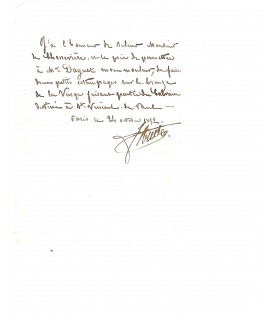 J'ai l'honneur de saluer Monsieur
de Chennevières, et le prie de permettre
à Mr. Daguet mon mouleur, de faire
deux petits estampages sur le bronze
de la Vierge faisant partie du Calvaire
destiné à St. Vincent de Paul —
Paris le 24 octobre 1852